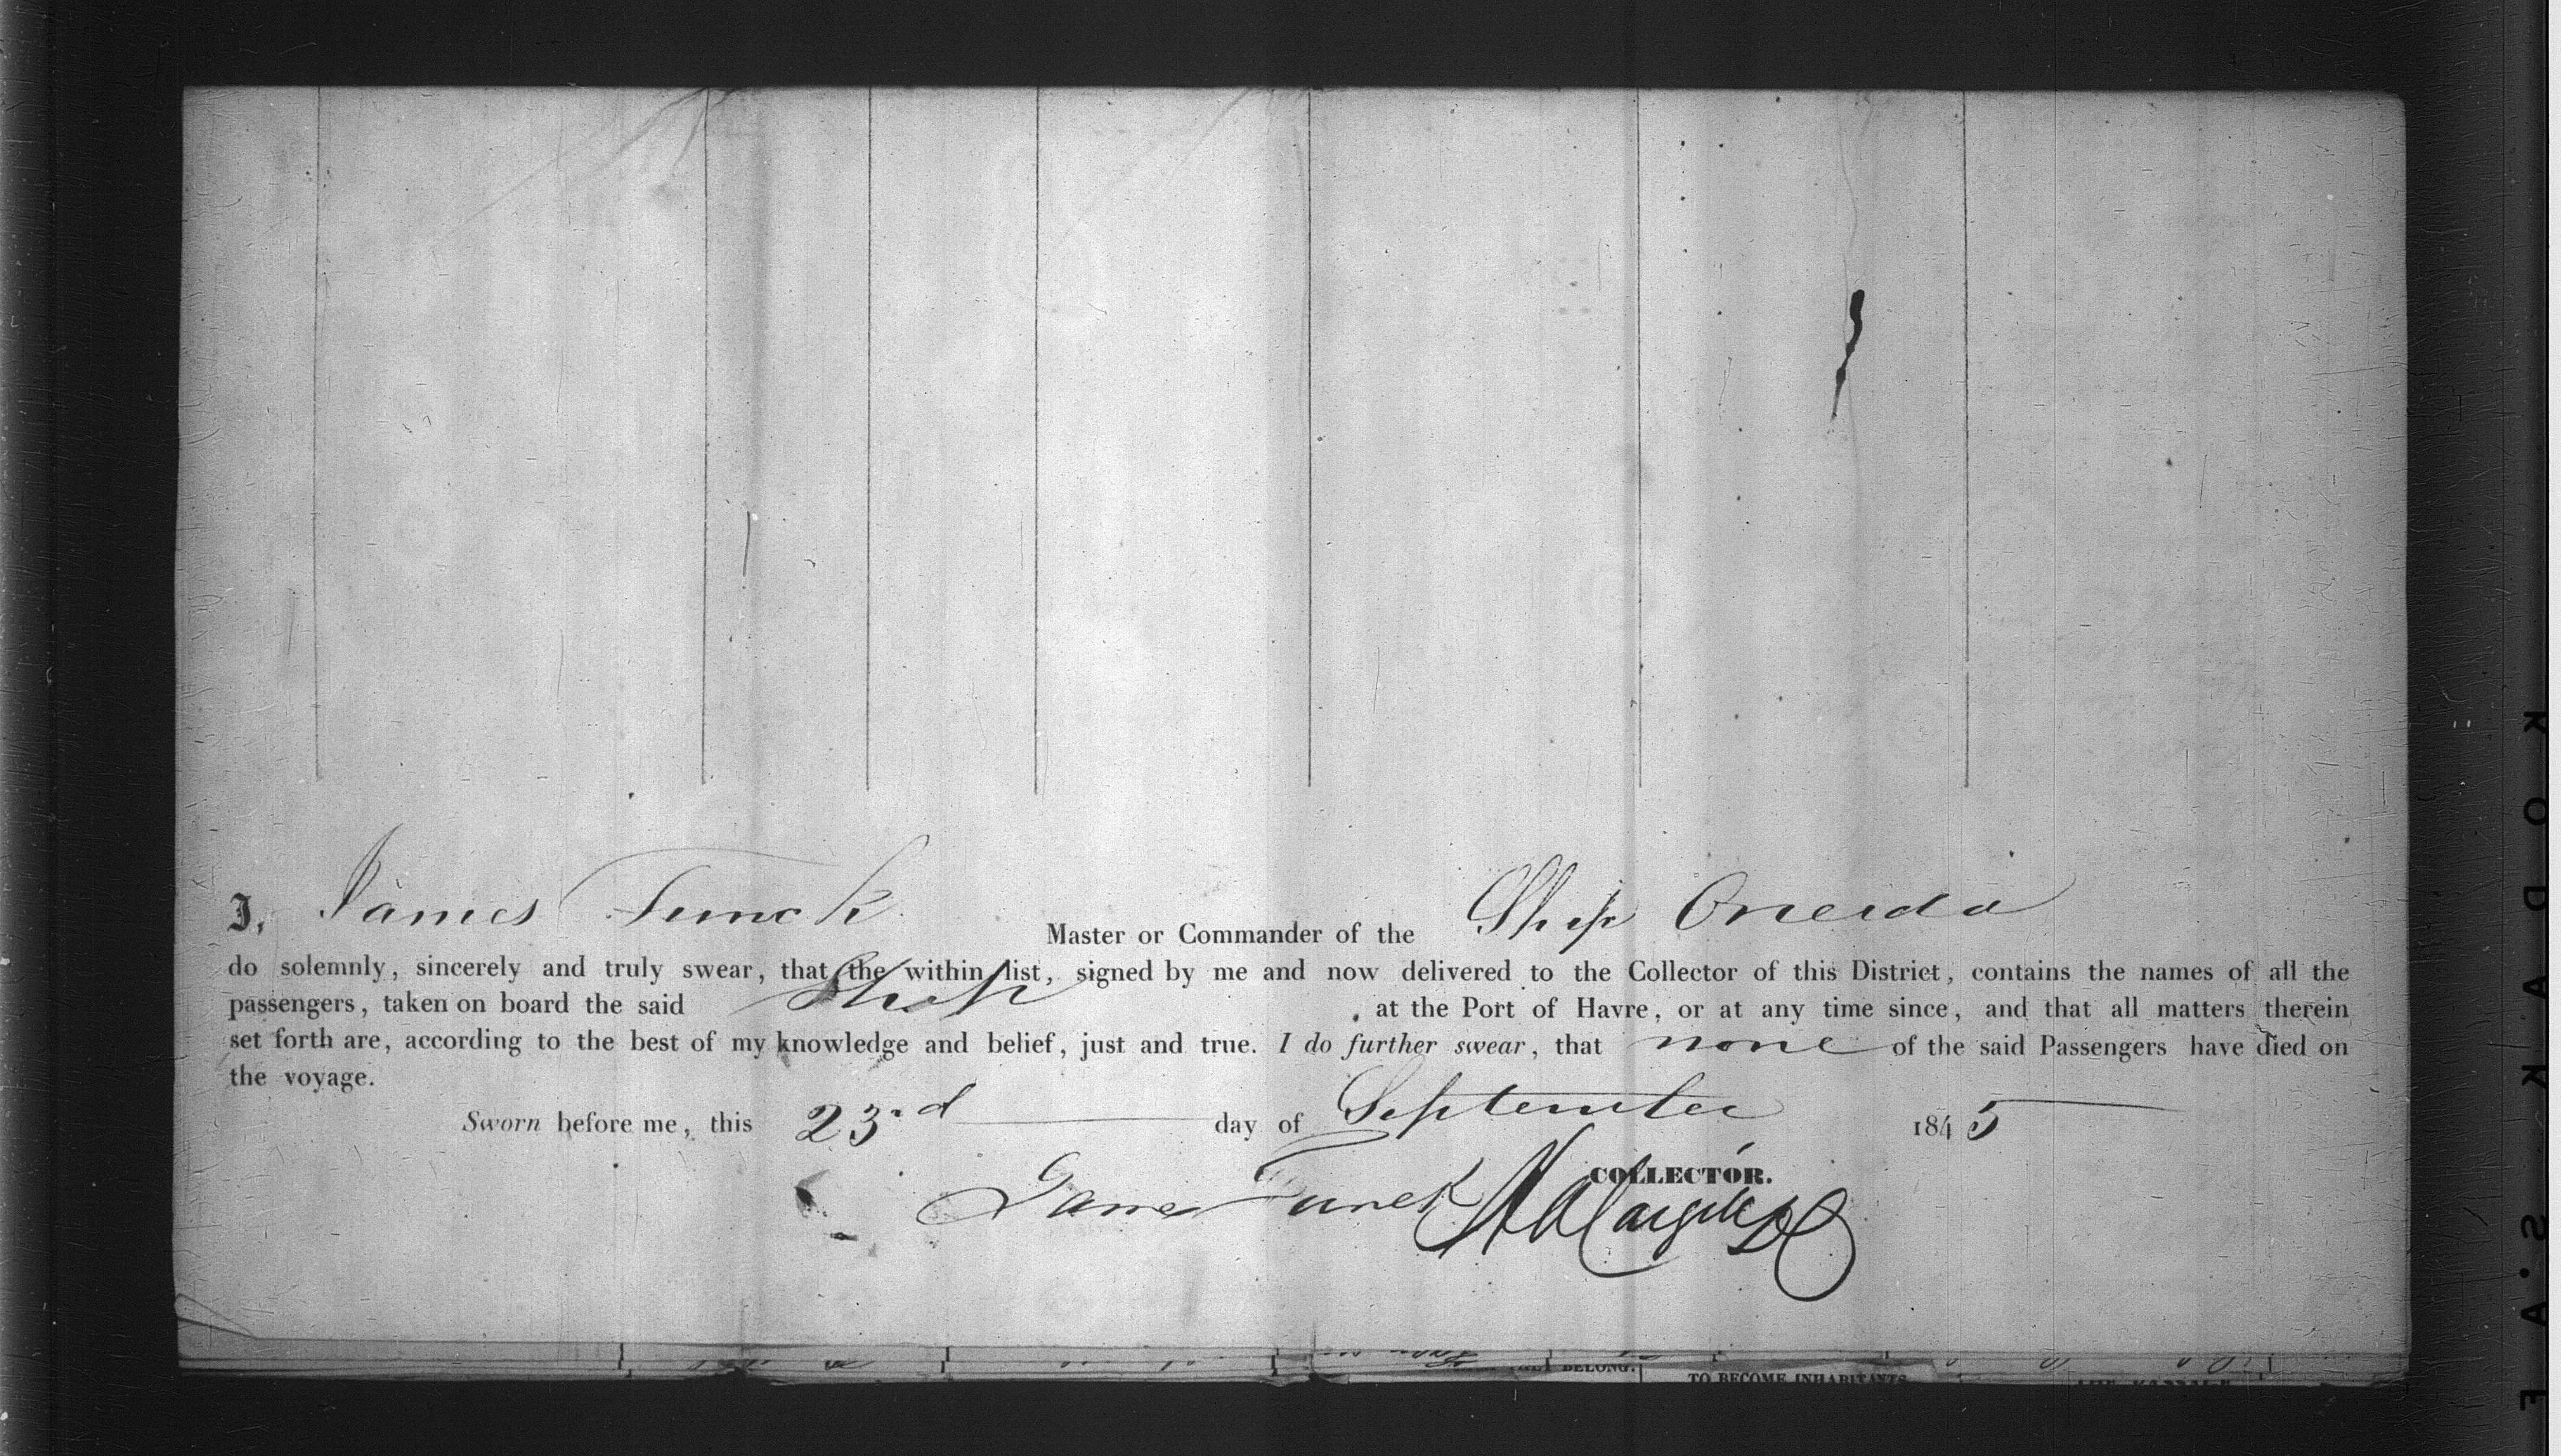 I, James Funck Master or Commander of the Ship Oneida
do solemnly, sincerely and truly swear, that the within list, signed by me and now delivered to the Collector of this District, contains the names of all the
passengers, taken on board the said Ship at the Port of Havre, or at any time since, and that all matters therein
set forth are, according to the best of my knowledge and belief, just and true. I do further swear, that none of the said Passengers have died on
the voyage.
Sworn before me, this 23rd day of September 1845
COLLECTOR.
James Funck
BELONG.
TO BECOME INHABITANTS
KODAK S.AFE